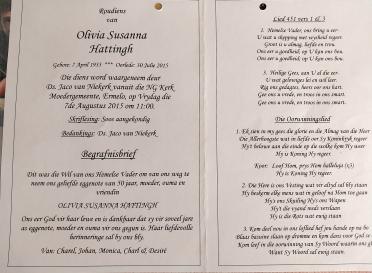 Roudiens
van
Olivia Susanna
Hattingh
Gebore: 7 April 1933 *** Oorlede: 30 Julie 2015
Die diens word waargeneem deur
Ds. Jaco van Niekerk vanuit die NG Kerk
Moedergemeente, Ermelo, op Vrydag die
7de Augustus 2015 om 11:00.
Skriflesing: Soos aangekondig
Bedankings: Ds. Jaco van Niekerk
Begrafnisbrief
Dit was die Wil van ons Hemelse Vader om van ons weg te
neem ons geliefde eggenote van 50 jaar, moeder, ouma en
vriendin
OLIVIA SUSANNA HATTINGH
Ons eer God vir haar lewe en is dankbaar dat sy vir soveel jare
as eggenote, moeder en ouma vir ons gegun is. Haar liefdevolle
herinneringe sal by ons bly.
Van: Charel, Johan, Monica, Charl & Desiré
Lied 451 vers 1 & 3
1. Hemelse Vader, ons bring eer-
U wat u skepping met wysheid regeer.
Groot is u almag, liefde en trou.
Ons eer u goedheid, op U kan ons bou.
Ons eer u goedheid, op U kan ons bou.
3. Heilige Gees, aan U al die eer-
U wat gelowiges lei en wil leer.
Rig ons gedagtes, heers oor ons hart.
Gee ons u vrede, en troos in ons smart.
Gee ons u vrede, en troos in ons smart.
Die Oorwinningslied
1. Ek sien in my gees die glorie en die Almag van die Heer
Hy is Koning Hy regeer.
Koor: Loof Hom, prys Hom halleluja (x3)
Hy is Koning Hy regeer.
2. Die Heer is ons Vesting wat vir altyd sal bly staan
Hy beskerm elke mens wat in geloof na Hom toe gaan
Hy's ons Skuiling Hy's ons Wapen
Hy't die vyand reeds verslaan
Hy is die Rots wat ewig staan
3. Kom deel nou in ons loflied hef jou hande op na bo
Want Sy Woord sal ewig staan.